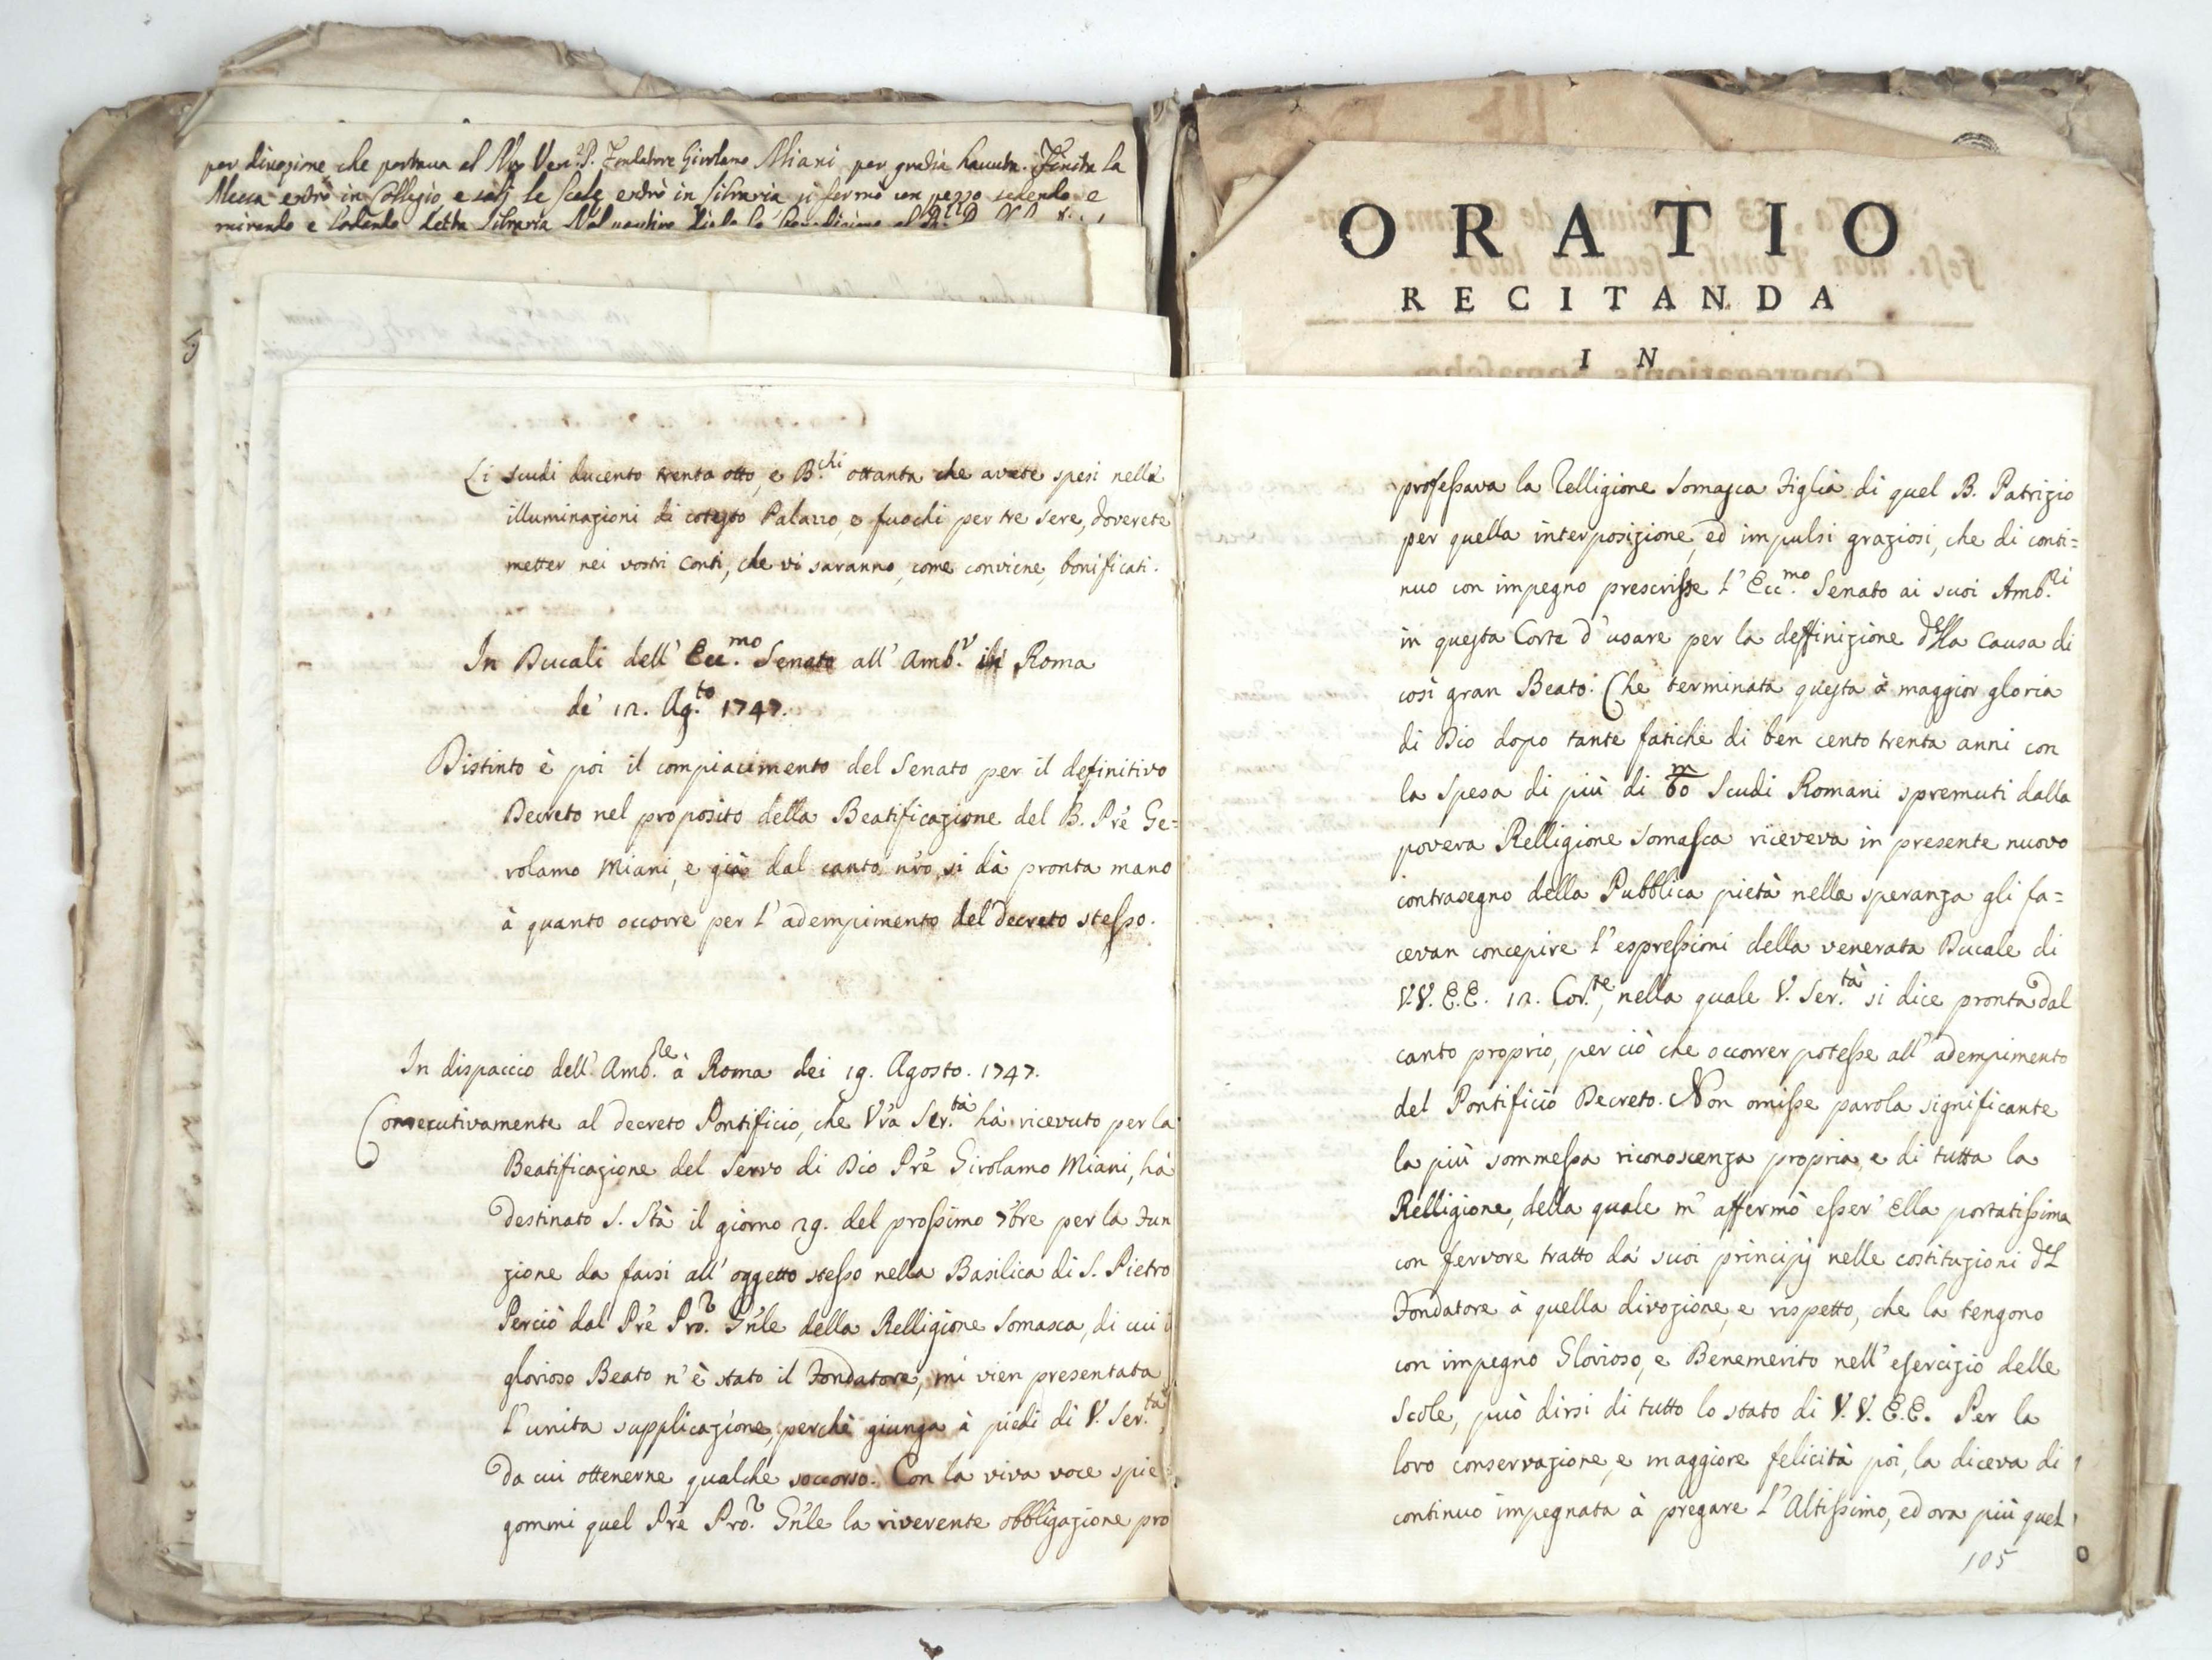 per divozione che portava al Nro Ven. P. Fondatore Girolamo Miani per gratia havuta. Finita la
Messa entrò in Collegio, e salì le scale entrò in libraria si fermò un pezzo sedendo e
mirando e lodando detta libraria
Li scudi ducento trenta otto, e B.chi ottanta che avete spesi nella
illuminazioni di cotesto Palazzo, e fuochi per tre sere, doverete
metter nei vostri conti, che vi saranno, come conviene, bonificati.
In Ducali dell' Ecc.mo Senato all' Amb.r in Roma
de' 12. Ag.to 1747.
Distinto è poi il compiacimento del Senato per il definitivo
Decreto nel proposito della Beatificazione del B. Pre Ge=
rolamo Miani, e già dal canto nro, si dà pronta mano
à quanto occorre per l' adempimento del decreto stesso.
In dispaccio dell' Amb.re à Roma dei 19. Agosto. 1747.
Consecutivamente al decreto Pontificio, che Vra Ser.tà hà ricevuto per la
Beatificazione del Servo di Dio Pre Girolamo Miani, hà
destinato S. Stà il giorno 29. del prossimo 7bre per la Fun
zione da farsi all' oggetto stesso nella Basilica di S. Pietro
Perciò dal Pre Pro.r Gnle della Relligione Somasca, di cui il
glorioso Beato n' è stato il Fondatore, mi vien presentata
l' unita supplicazione, perchè giunga à piedi di V. Ser.tà,
da cui ottenerne qualche soccorso. Con la viva voce spie=
gommi quel Pre Pro.r Gnle la riverente obbligazione pro
ORATIO
RECITANDA
IN
professava la Relligione Somasca Figlia di quel B. Patrizio
per quella interposizione, ed impulsi graziosi, che di conti=
nuo con impegno prescrisse l' Ecc.mo Senato ai suoi Amb.ri
in questa Corte d' usare per la deffinizione della causa di
così gran Beato. Che terminata questa à maggior gloria
di Dio dopo tante fatiche di ben cento trenta anni con
la spesa di più di 60 m Scudi Romani spremuti dalla
povera Relligione Somasca riceveva in presente nuovo
contrasegno della Pubblica pietà nella speranza gli fa=
cevan concepire l' espressioni della venerata Ducale di
V.V. E.E. 12. Cor.te, nella quale V. Ser.tà si dice pronta dal
canto proprio, per ciò che occorrer potesse all' adempimento
del Pontificio Decreto. Non omisse parola significante
la più sommessa riconoscenza propria, e di tutta la
Relligione, della quale m' affermò esser' Ella portatissima
con fervore tratto da' suoi principj nelle costituzioni del
Fondatore à quella divozione, e rispetto, che la tengono
con impegno Glorioso, e Benemerito nell' esercizio delle
Scole, può dirsi di tutto lo stato di V. V. E. E. Per la
loro conservazione, e maggiore felicità poi, la diceva di
continuo impegnata à pregare l' Altissimo, ed ora più quel
105